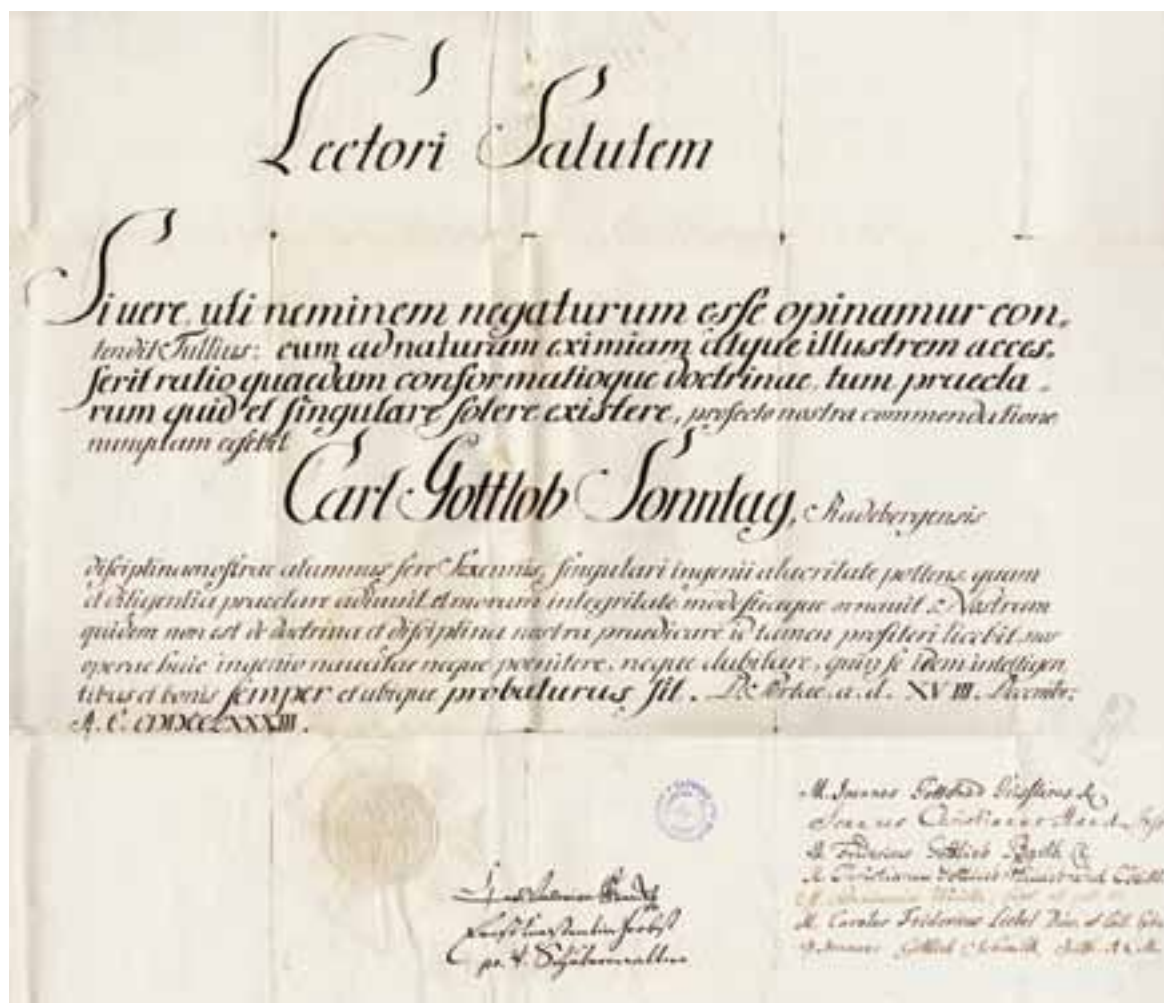 Lectori Salutem
Si uere, uti neminem negaturum esse opinamur con-
tendit Tullius: cum ad naturam eximiam atque illustrem acces-
serit ratio quaedam conformatioque doctrinae, tum praecla-
rum quid et singulare solere existere, profecto nostra commendatione
nunquam egebit
Carl Gottlob Sonntag, Radebergensis
disciplinae nostrae alumnus fere Sexennis, singulari ingenii alacritate pollens, quam
et diligentia praeclare adiuuit et morum integritate modestiaque ornauit. Nostrum
quidem non est de doctrina et disciplina nostra praedicare id tamen profiteri licebit, nos
operae huic ingenio nauatae neque poenitere, neque dubitare, quin se idem intelligen
tibus et bonis semper et ubique probaturus sit. Portae. a. d. XVIII. Decembr.
A. C. MDCCLXXXIII.
M. Gottlieb
Christianus
Fridericus Gottlieb Barth
M. Christianus
M. Carolus Fridericus Liebel
Gottlieb Schmidt